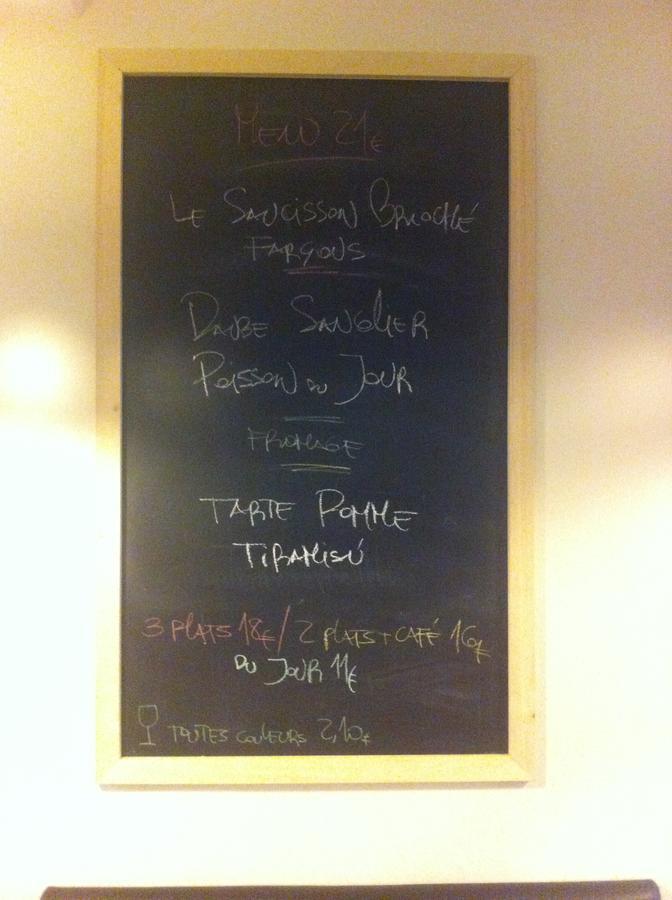 MENU 21€
LE SAUCISSON BRIOCHÉ
FARÇOUS
DAUBE SANGLIER
POISSON DU JOUR
FROMAGE
TARTE POMME
TIRAMISÚ
3 PLATS 18€ / 2 PLATS + CAFÉ 16€
DU JOUR 11€
TOUTES COULEURS 2,10€